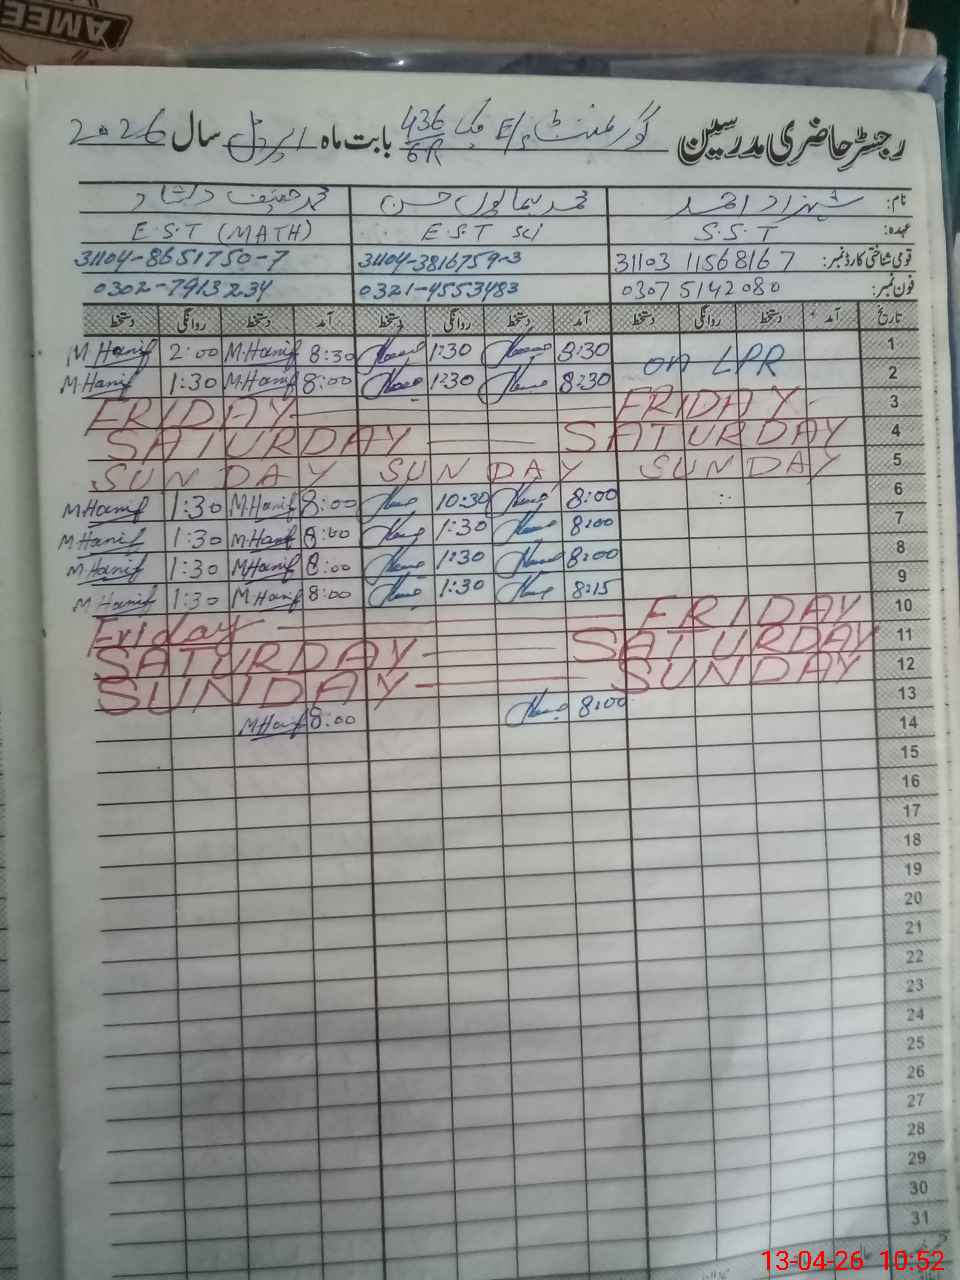 AMEE
رجسٹر حاضری مدرسین گورنمنٹ E/S چک 436/6R بابت ماہ اپریل سال 2026
نام: شہزاد احمد محمد ہمایوں حسن محمد حنیف دلشاد
عہدہ: S.S.T E.S.T Sci E.S.T (MATH)
قومی شناختی کارڈ نمبر: 31103 11568167 31104-3816759-3 31104-8651750-7
فون نمبر: 0307 5142080 0321-4553483 0302-7913234
تاریخ آمد دستخط روانگی دستخط آمد دستخط روانگی دستخط آمد دستخط روانگی دستخط
M Hanif 2:00 M.Hanif 8:30 1:30 8:30 on LPR 1
M.Hanif 1:30 M.Hanif 8:00 1:30 8:30 2
FRIDAY FRIDAY 3
SATURDAY SATURDAY 4
SUNDAY SUNDAY SUNDAY 5
M.Hanif 1:30 M.Hanif 8:00 10:30 8:00 6
M.Hanif 1:30 M.Hanif 8:00 1:30 8:00 7
M.Hanif 1:30 M.Hanif 8:00 1:30 8:00 8
M Hanif 1:30 M Hanif 8:00 1:30 8:15 9
Friday FRIDAY 10
SATURDAY SATURDAY 11
SUNDAY SUNDAY 12
M.Hanif 8:00 8:00 13
14
15
16
17
18
19
20
21
22
23
24
25
26
27
28
29
30
31
13-04-26 10:52